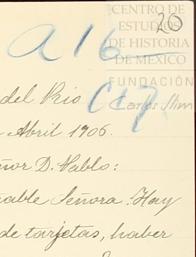 CENTRO DE
ESTUDIOS
DE HISTORIA
DE MEXICO
FUNDACIÓN
Carlos Slim
20
a 16
del Rio
C 17
Abril 1906.
ñor D. Pablo:
able Señora. Hay
de tarjetas, haber